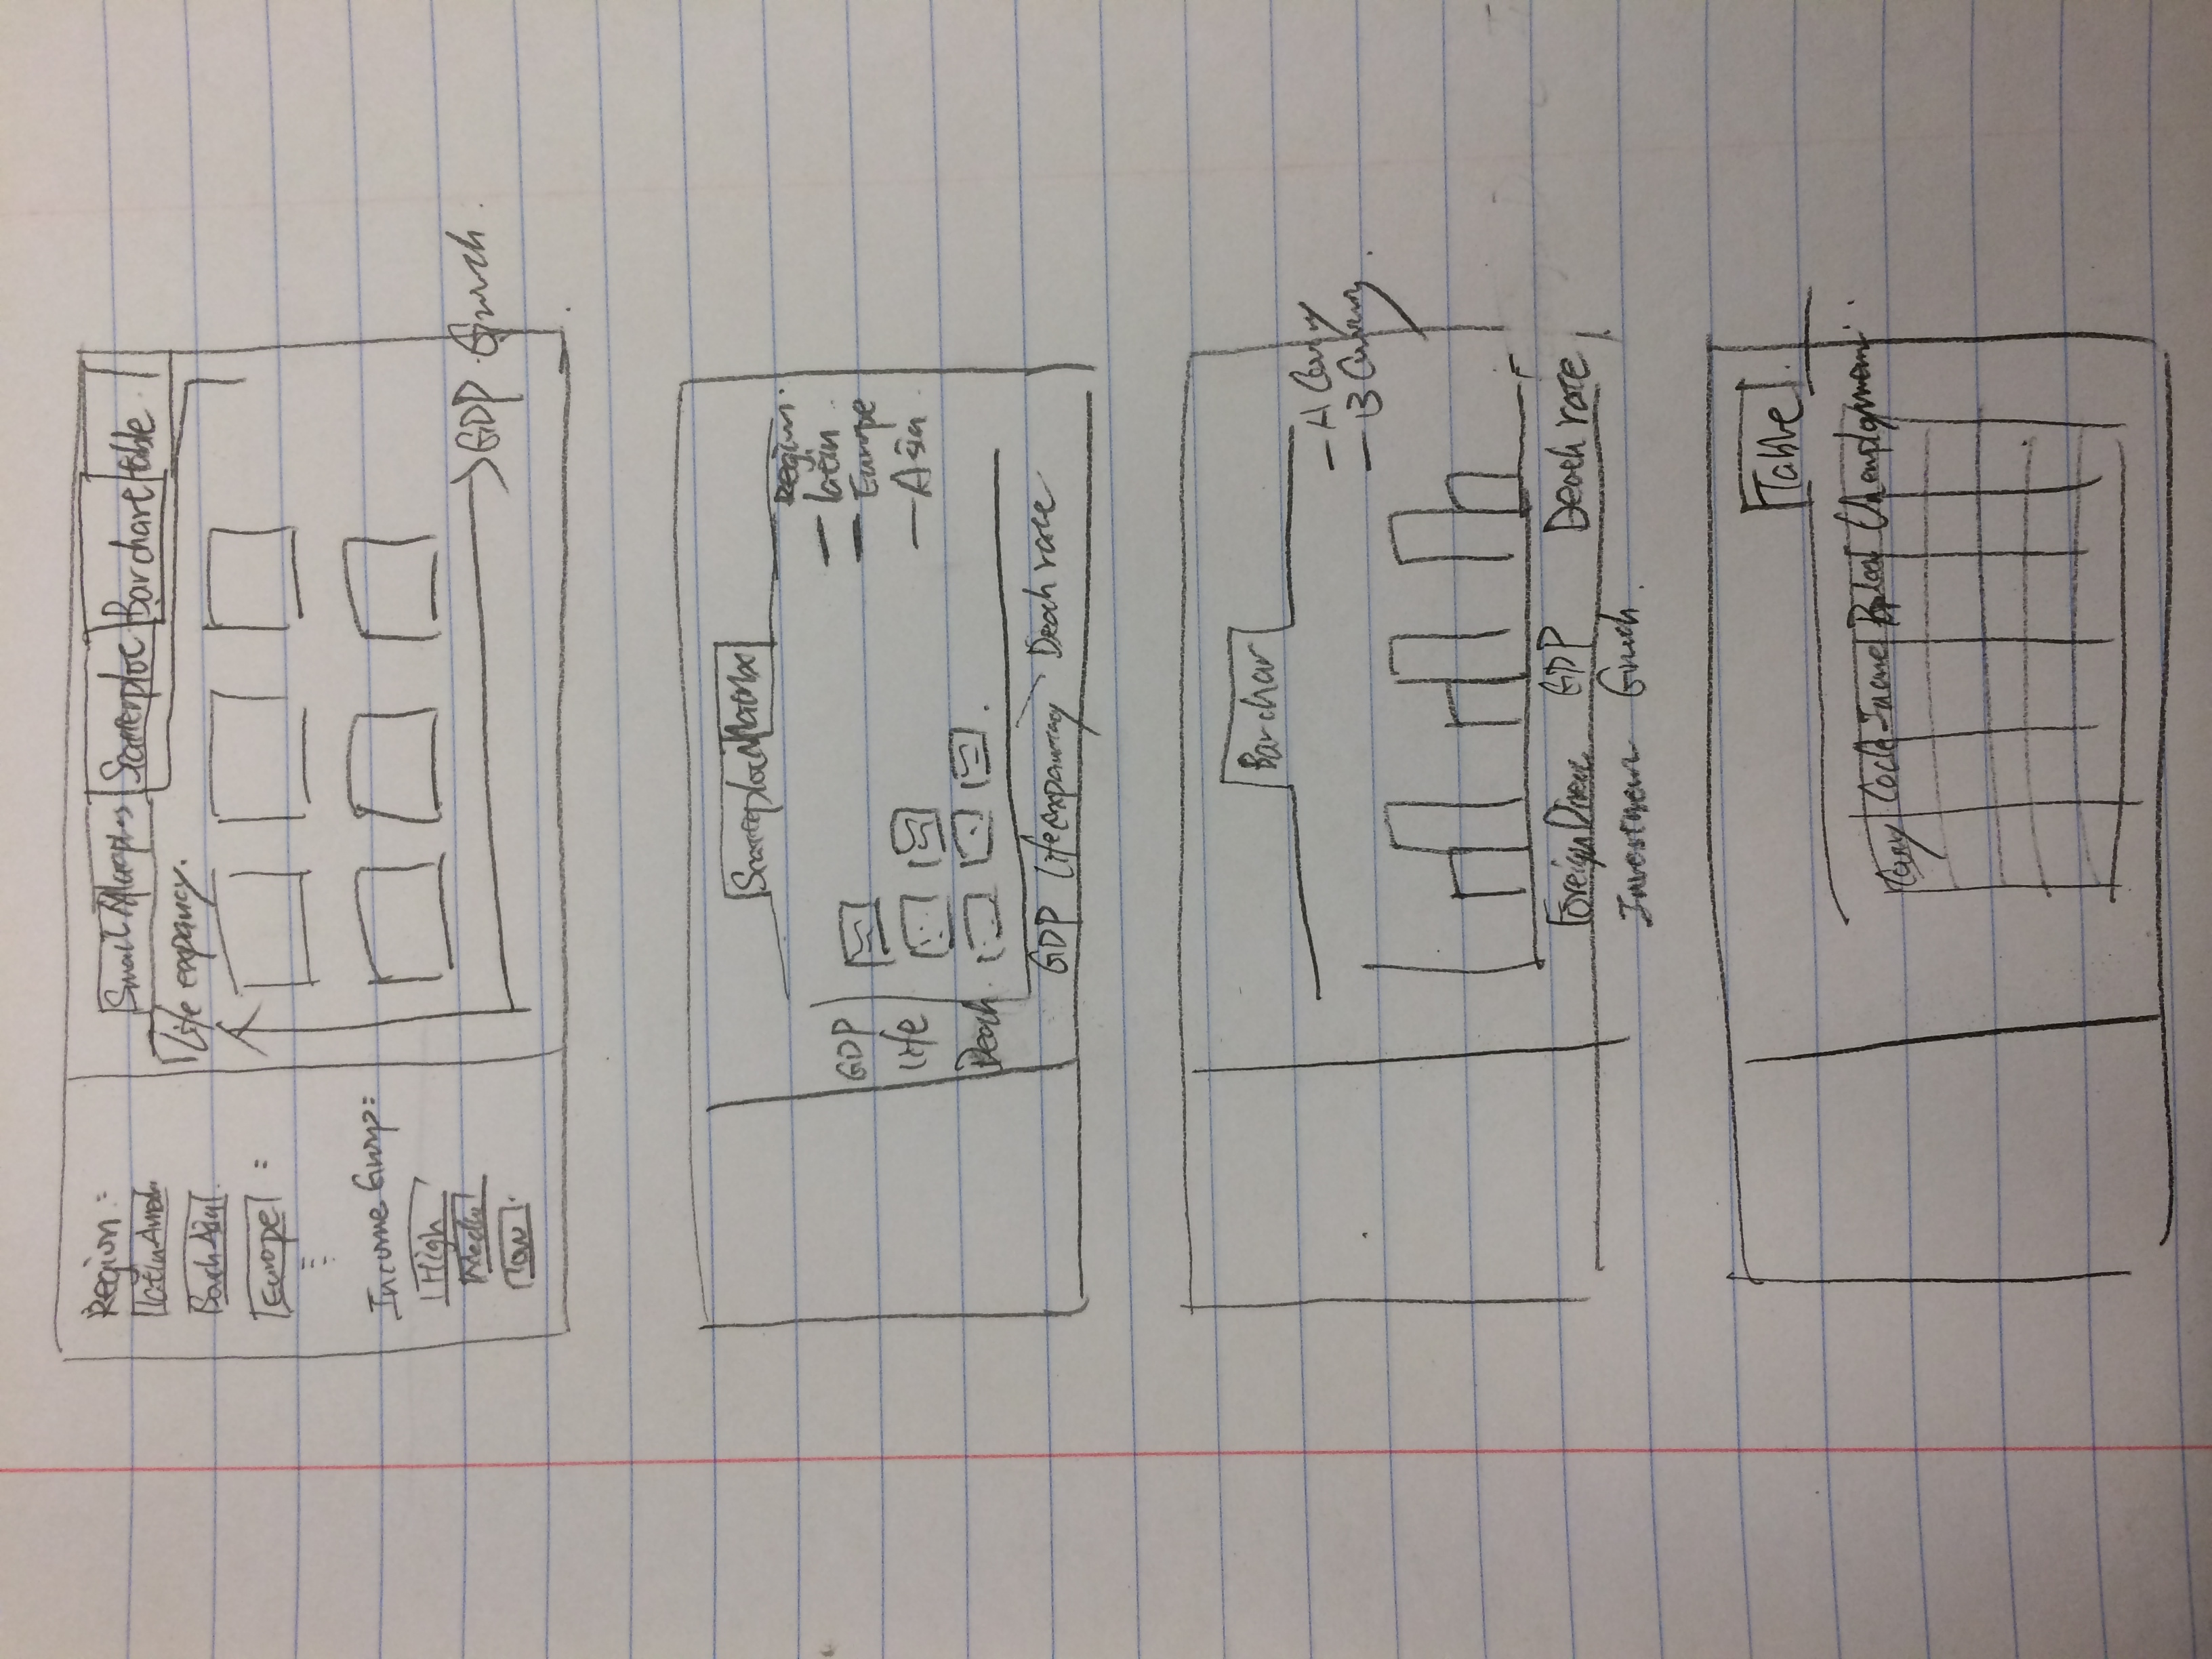 Region :
Latin Amer
South Asia
Europe :
Income Group :
High
Media
Low
Small Multiples Scatterplot Barchart table
Life expancy.
GDP Growth.
Scatterplot Matrix
Region.
latin
Europe
Asia
GDP
Life
Death
GDP Life expantancy Death rate
Barchar
A Country
B Country
Foreign Direct GDP Death rate
Investment Growth.
Table
Code Income Unemployment